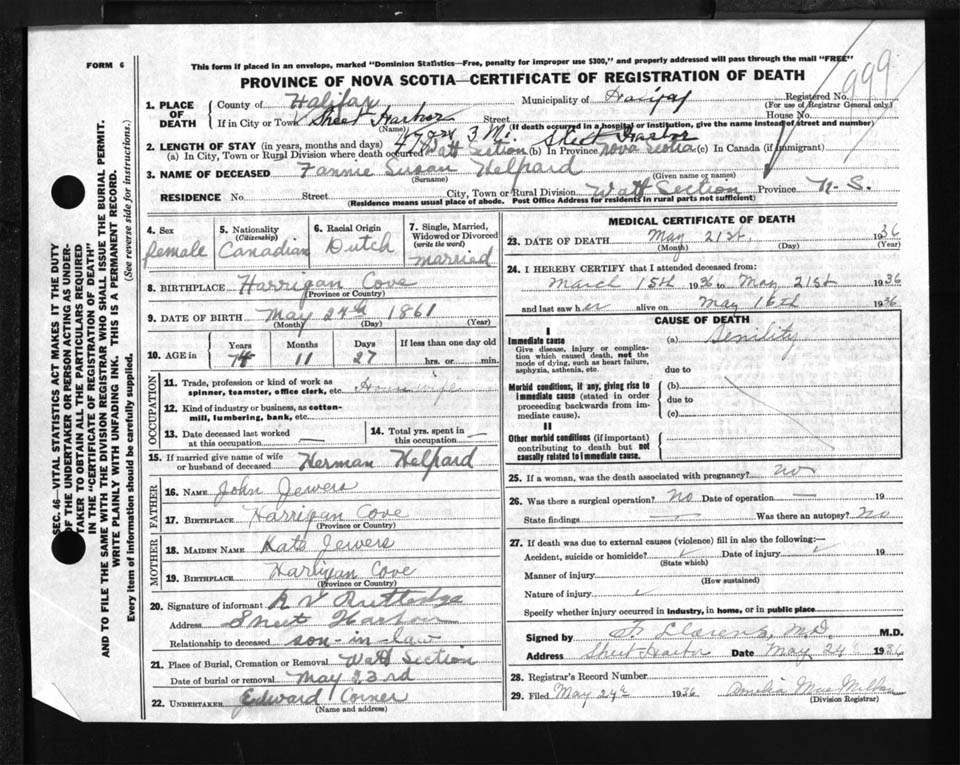 FORM 6
This form if placed in an envelope, marked "Dominion Statistics—Free, penalty for improper use $300," and properly addressed will pass through the mail "FREE"
PROVINCE OF NOVA SCOTIA—CERTIFICATE OF REGISTRATION OF DEATH
999
SEC. 46—VITAL STATISTICS ACT MAKES IT THE DUTY
OF THE UNDERTAKER OR PERSON ACTING AS UNDER-
TAKER TO OBTAIN ALL THE PARTICULARS REQUIRED
IN THE "CERTIFICATE OF REGISTRATION OF DEATH"
AND TO FILE THE SAME WITH THE DIVISION REGISTRAR WHO SHALL ISSUE THE BURIAL PERMIT.
WRITE PLAINLY WITH UNFADING INK. THIS IS A PERMANENT RECORD.
Every item of information should be carefully supplied. (See reverse side for instructions.)
1. PLACE OF DEATH
County of Halifax Municipality of Halifax Registered No.
(For use of Registrar General only.)
If in City or Town Sheet Harbor Street House No.
(Name) (If death occurred in a hospital or institution, give the name instead of street and number)
2. LENGTH OF STAY (in years, months and days) 47 yrs 3 M. Sheet Harbor
(a) In City, Town or Rural Division where death occurred Watt Section (b) In Province Nova Scotia (c) In Canada (if immigrant)
3. NAME OF DECEASED Fannie Susan Helpard
(Surname) (Given name or names)
RESIDENCE No. Street City, Town or Rural Division Watt Section Province N. S.
(Residence means usual place of abode. Post Office Address for residents in rural parts not sufficient)
4. Sex
female
5. Nationality
(Citizenship)
Canadian
6. Racial Origin
Dutch
7. Single, Married,
Widowed or Divorced
(write the word)
married
8. BIRTHPLACE Harrigan Cove
(Province or Country)
9. DATE OF BIRTH May 24th 1861
(Month) (Day) (Year)
10. AGE in
Years Months Days If less than one day old
74 11 27 hrs. or min.
OCCUPATION
11. Trade, profession or kind of work as
spinner, teamster, office clerk, etc. Housewife
12. Kind of industry or business, as cotton-
mill, lumbering, bank, etc.
13. Date deceased last worked
at this occupation —
14. Total yrs. spent in
this occupation —
15. If married give name of wife
or husband of deceased Herman Helpard
FATHER
16. NAME John Jewers
17. BIRTHPLACE Harrigan Cove
(Province or Country)
MOTHER
18. MAIDEN NAME Kate Jewers
19. BIRTHPLACE Harrigan Cove
(Province or Country)
20. Signature of informant Rutledge
Address Sheet Harbor
Relationship to deceased son-in-law
21. Place of Burial, Cremation or Removal Watt Section
Date of burial or removal May 23rd
22. UNDERTAKER Edward Conner
(Name and address)
MEDICAL CERTIFICATE OF DEATH
23. DATE OF DEATH May 21st. 1936
(Month) (Day) (Year)
24. I HEREBY CERTIFY that I attended deceased from:
March 15th 1936 to May 21st 1936
and last saw her alive on May 16th 1936
CAUSE OF DEATH
I
Immediate cause
Give disease, injury or compli-
cation which caused death, not the
mode of dying, such as heart failure,
asphyxia, asthenia, etc.
(a) Senility
due to
Morbid conditions, if any, giving rise to
immediate cause (stated in order
proceeding backwards from im-
mediate cause).
(b)
due to
(c)
II
Other morbid conditions (if important)
contributing to death but not
causally related to immediate cause.
25. If a woman, was the death associated with pregnancy? no
26. Was there a surgical operation? No Date of operation — 19
State findings — Was there an autopsy? No
27. If death was due to external causes (violence) fill in also the following:—
Accident, suicide or homicide? Date of injury 19
(State which)
Manner of injury
(How sustained)
Nature of injury
Specify whether injury occurred in industry, in home, or in public place
Signed by M.D. M.D.
Address Sheet Harbor Date May 24th 1936
28. Registrar's Record Number
29. Filed May 29th 1936 Amelia MacMillan
(Division Registrar)